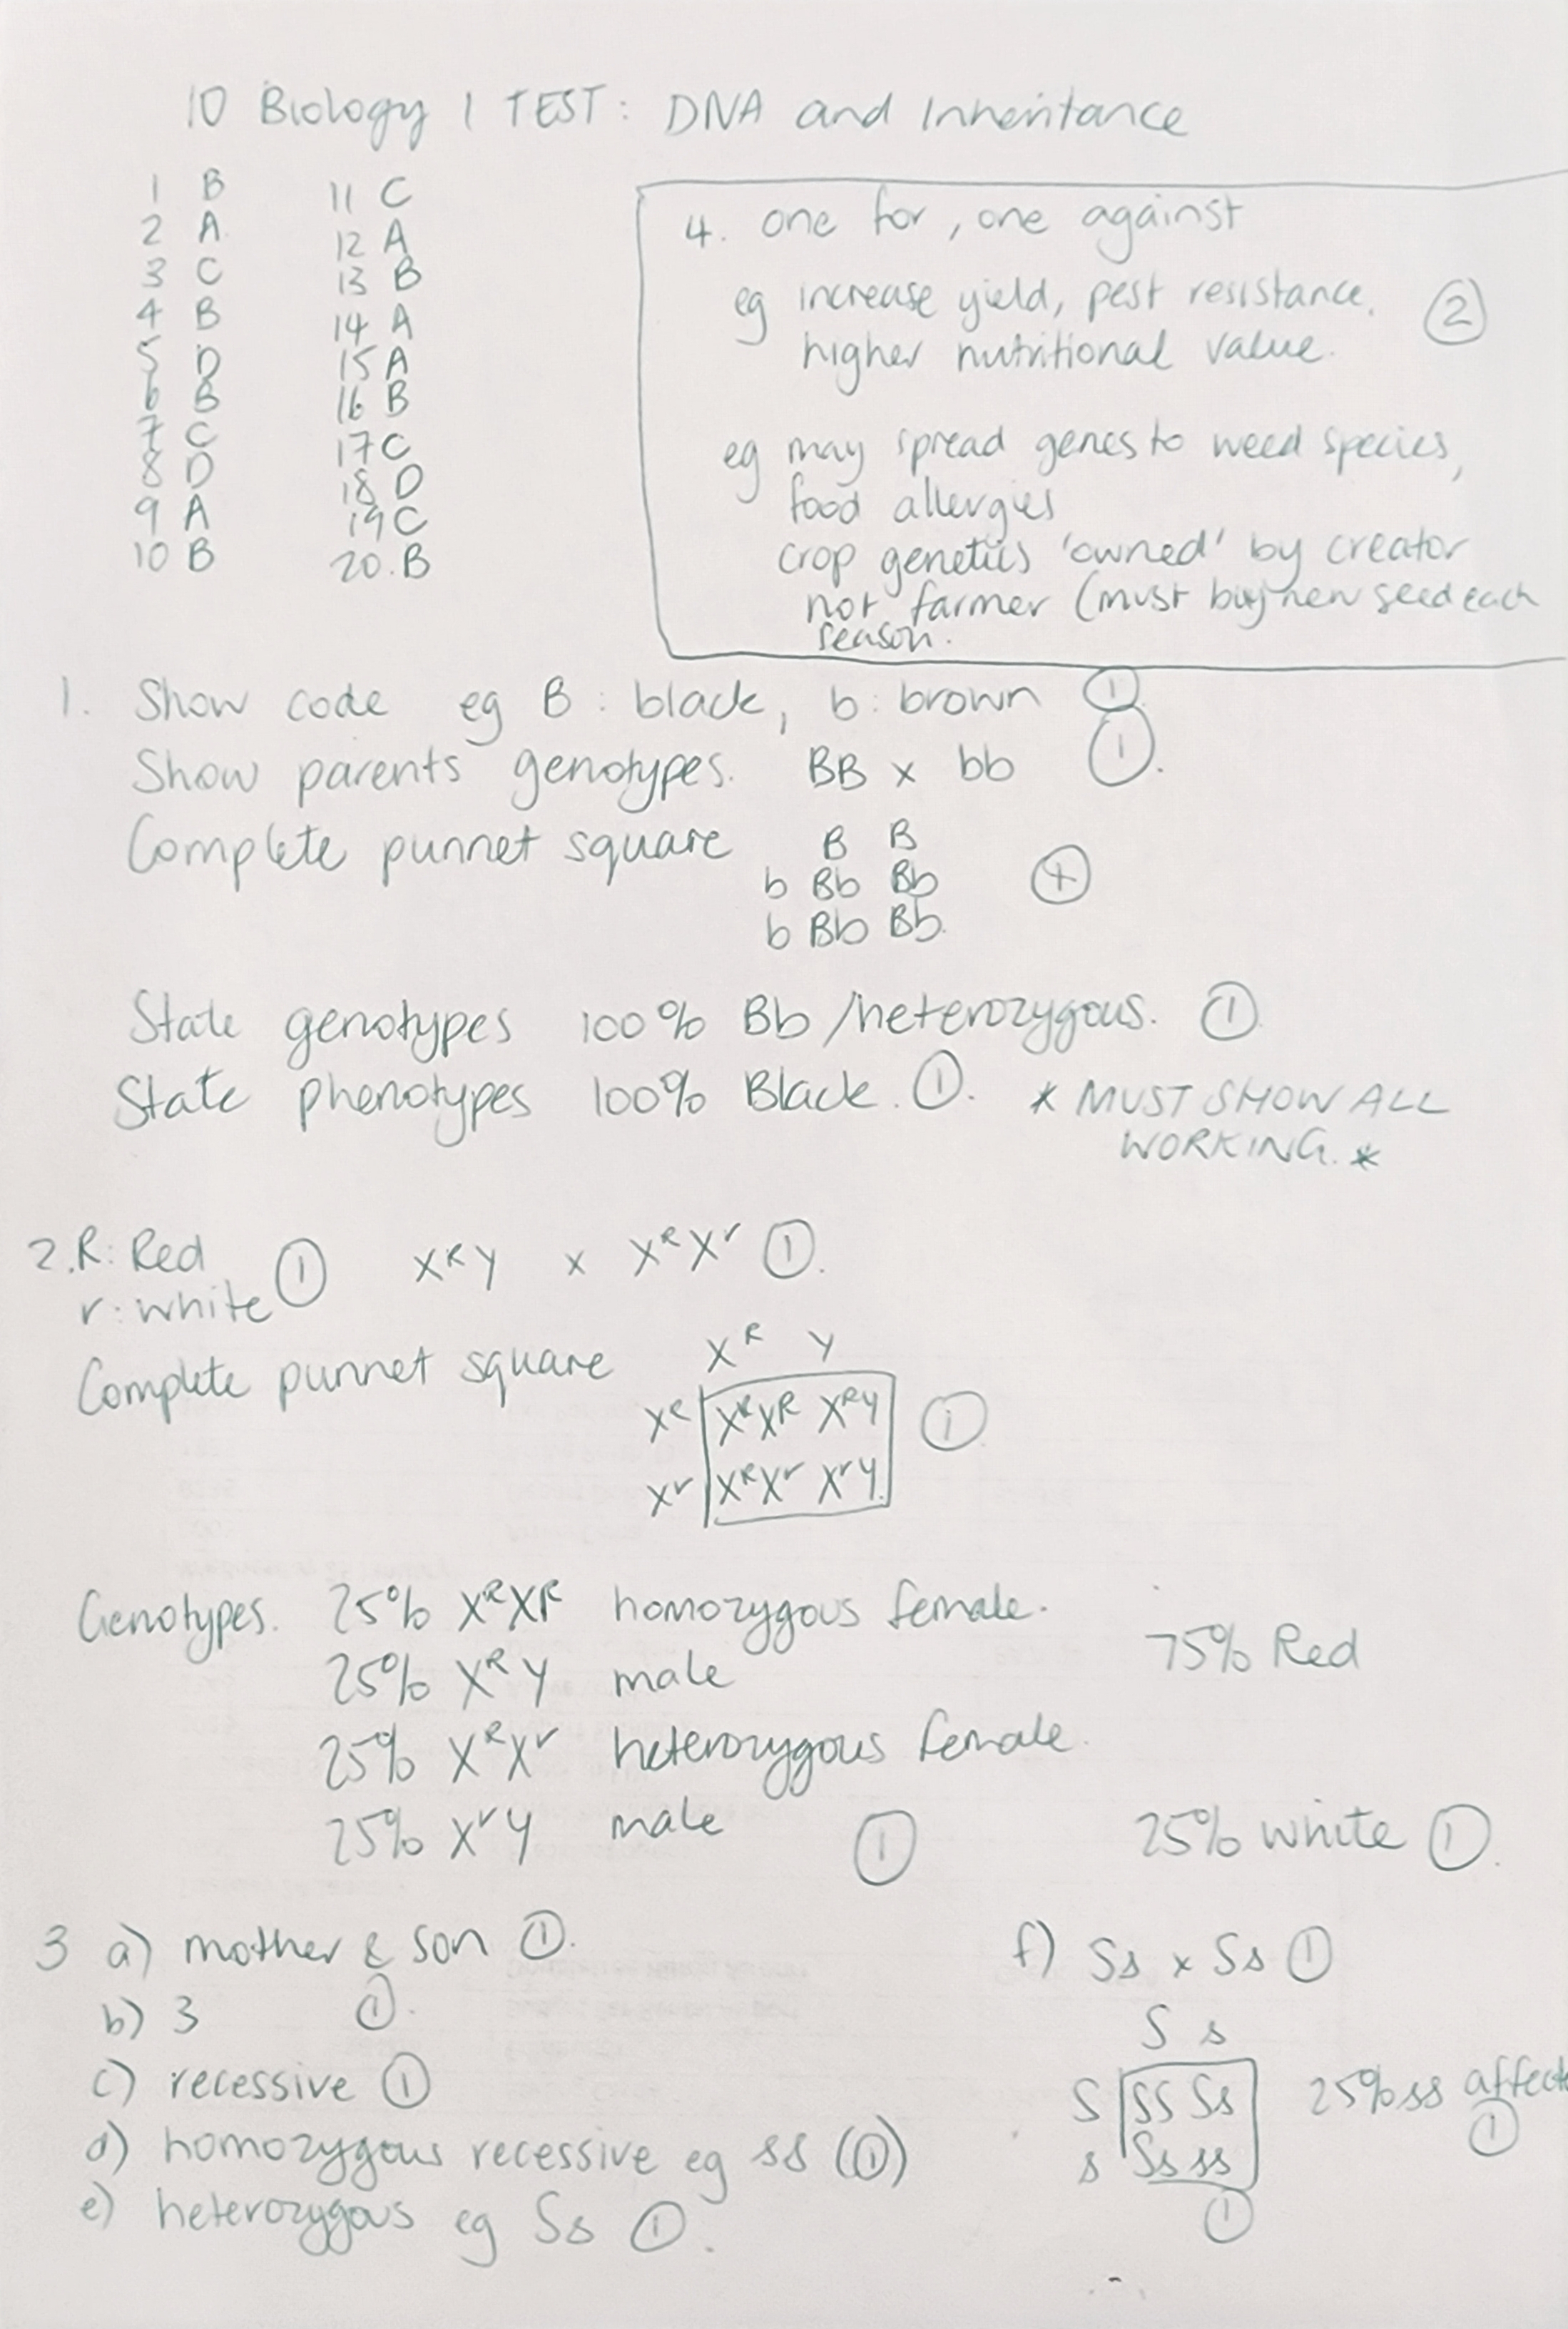 10 Biology 1 TEST: DNA and Inheritance
1 B
2 A
3 C
4 B
5 D
6 B
7 C
8 D
9 A
10 B
11 C
12 A
13 B
14 A
15 A
16 B
17 C
18 D
19 C
20. B
4. one for, one against
eg increase yield, pest resistance, 2
higher nutritional value.
eg may spread genes to weed species,
food allergies
crop genetics 'owned' by creator
not farmer (must buy new seed each
season.
1. Show code eg B: black, b: brown 1
Show parents genotypes. BB x bb 1.
Complete punnet square
B B
b Bb Bb
b Bb Bb.
State genotypes 100% Bb/heterozygous. 1
State phenotypes 100% Black. 1. * MUST SHOW ALL
WORKING. *
2. R: Red 1 XᴿY x XᴿXʳ 1.
r: white
Complete punnet square
Xᴿ Y
Xᴿ XᴿXᴿ XᴿY 1
Xʳ XᴿXʳ XʳY
Genotypes. 25% XᴿXᴿ homozygous female.
25% XᴿY male
25% XᴿXʳ heterozygous female.
25% XʳY male 1
75% Red
25% white 1.
3 a) mother & son 1.
b) 3 1.
c) recessive 1
d) homozygous recessive eg ss (1)
e) heterozygous eg Ss 1.
f) Ss x Ss 1
S s
S SS Ss 25% ss
s Ss ss 1
1